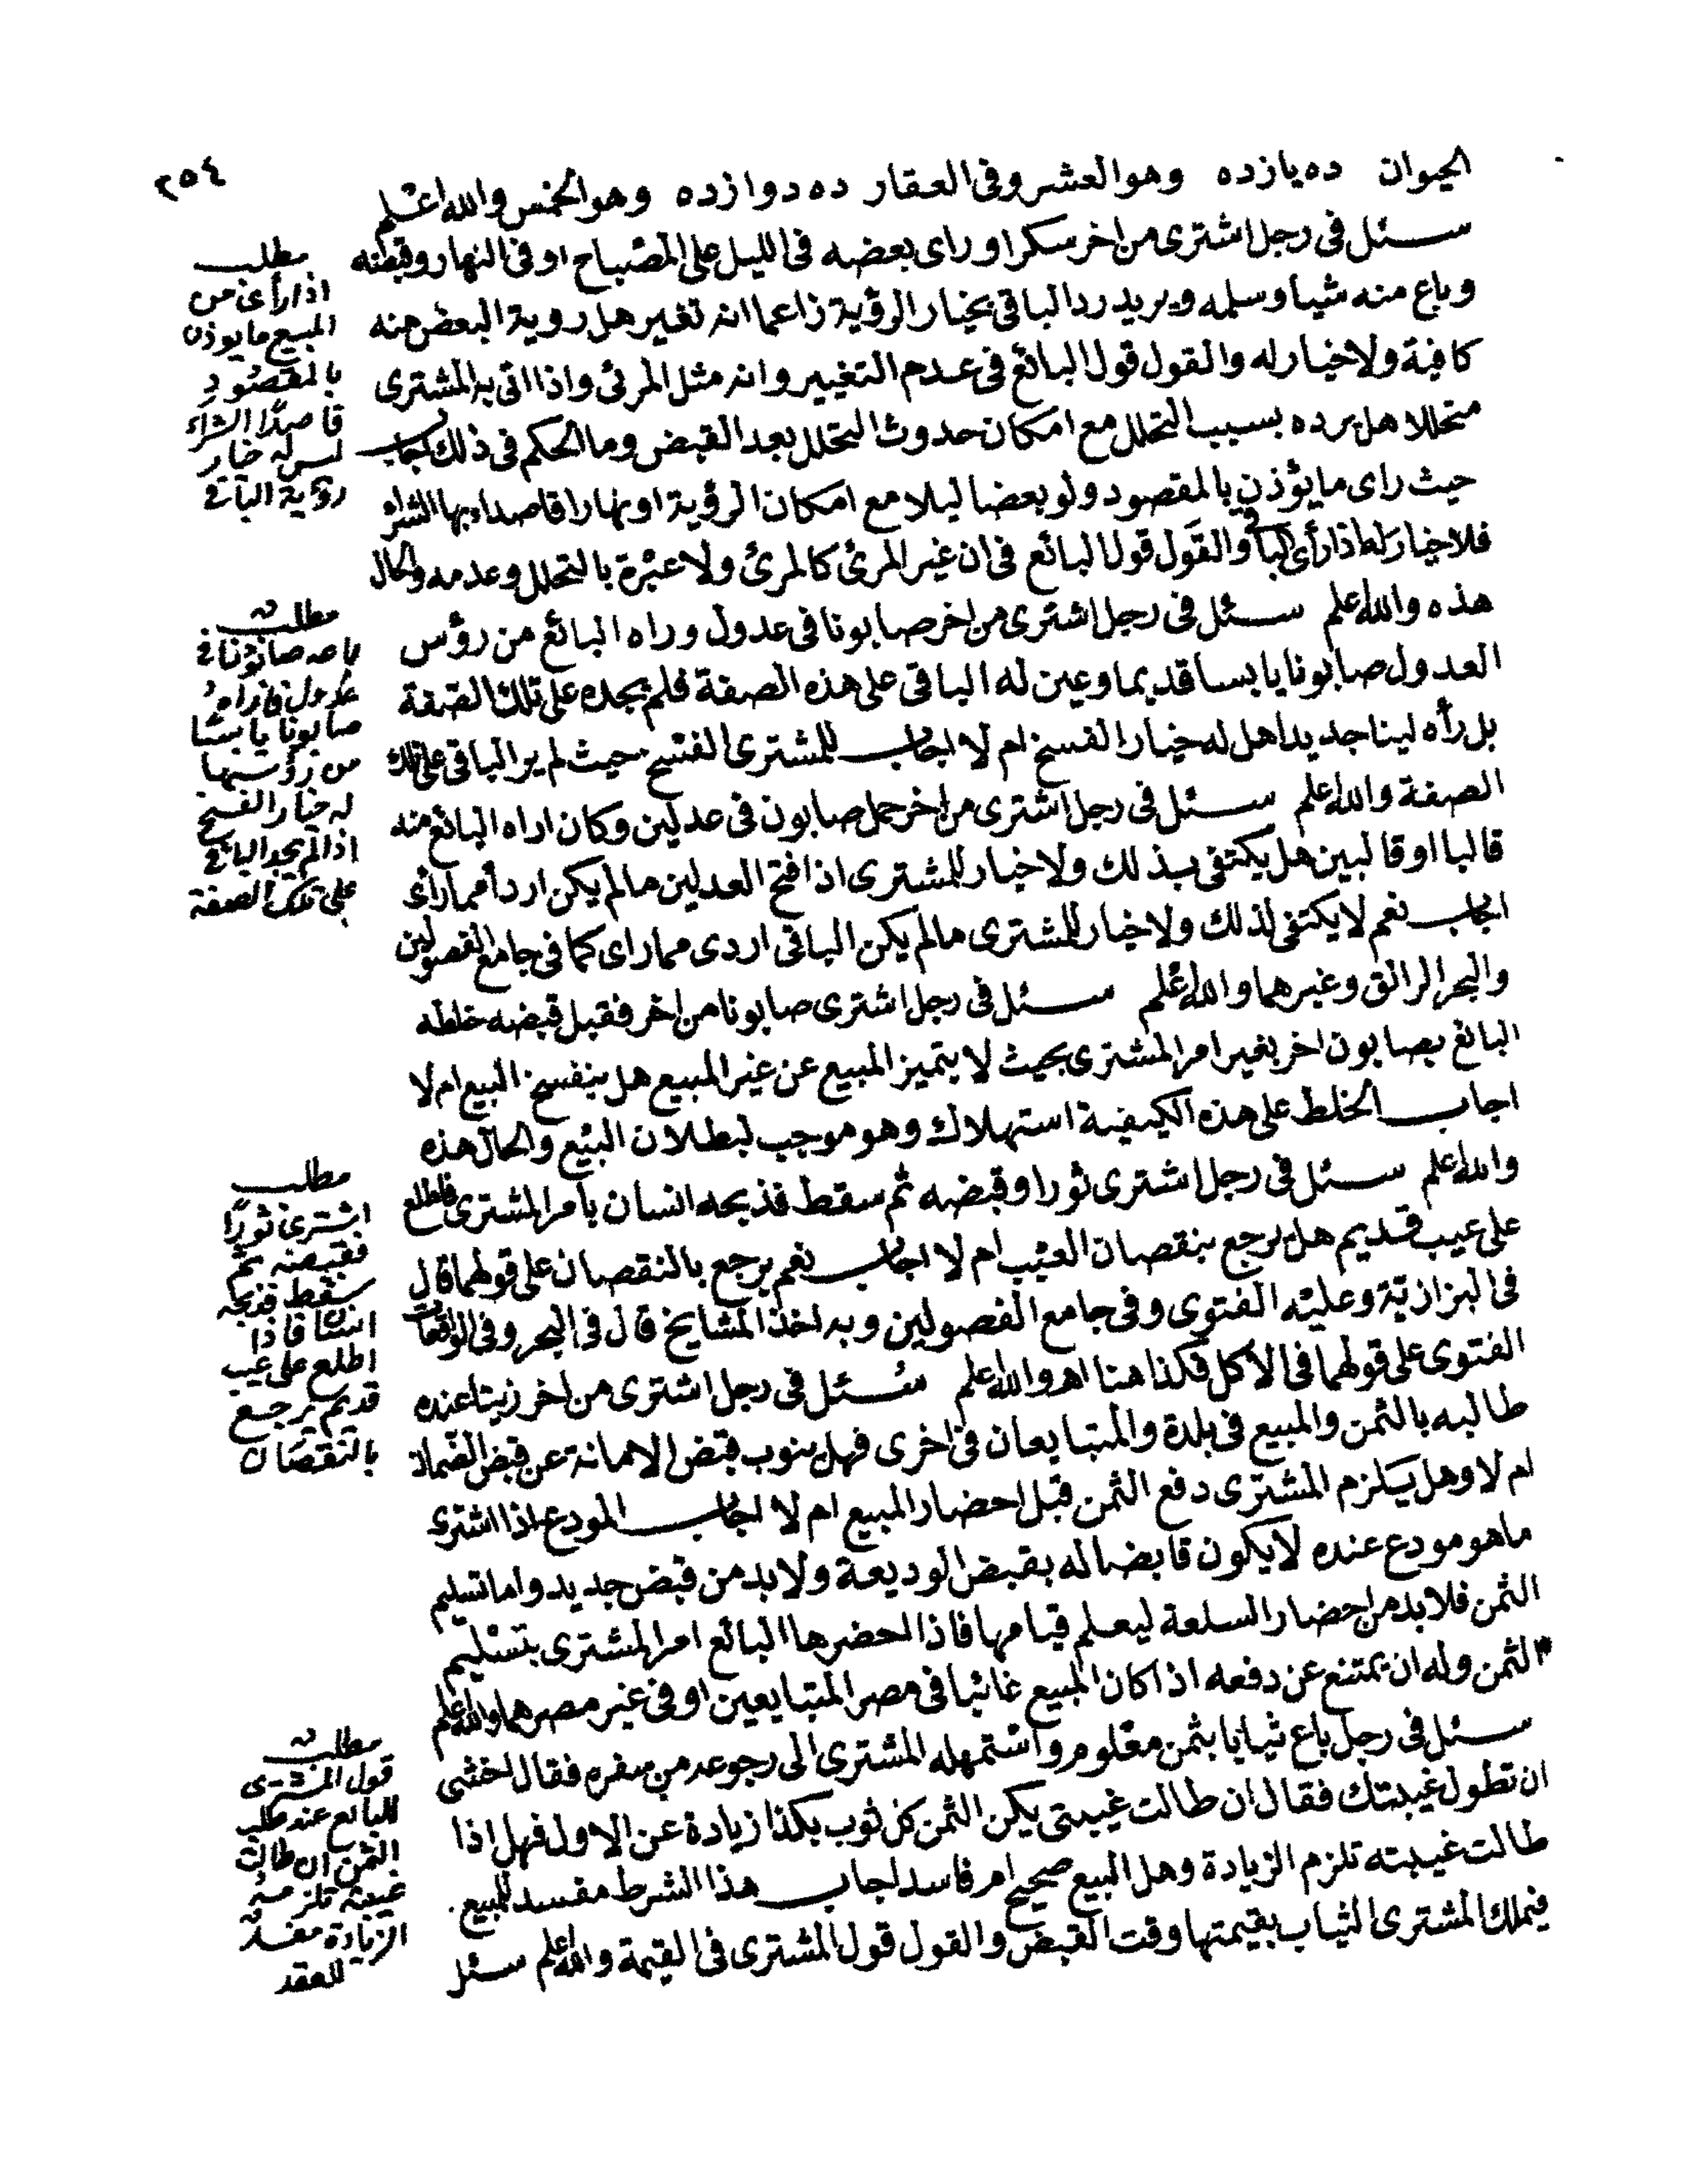 ٢٥٤
الحيوان ده يازده وهو العشر وفى العقار ده دوازده وهو الخمس والله اعلم
سئل فى رجل اشترى من اخر سكرا وراى بعضه فى الليل على المصباح او فى النهار وقبضه
وباع منه شيا وسلمه ويريد رد الباقى بخيار الرؤية زاعما انه تغير هل روية البعض منه
كافية ولا خيار له والقول قول البائع فى عدم التغيير وانه مثل المرئى واذا اتى به المشترى
متحللا هل يرده بسبب التحلل مع امكان حدوث التحلل بعد القبض وما الحكم فى ذلك اجاب
حيث راى ما يؤذن بالمقصود ولو بعضا ليلا مع امكان الرؤية او نهارا قاصدا بها الشرا
فلا خيار له اذا رأى الباقى والقول قول البائع فى ان غير المرئ كالمرئ ولا عبرة بالتحلل وعدمه والحال
هذه والله اعلم سئل فى رجل اشترى من اخر صابونا فى عدول وراه البائع من رؤس
العدول صابونا يابسا قديما وعين له الباقى على هذه الصفة فلم يجده على تلك الصفة
بل رأه لينا جديدا هل له خيار الفسخ ام لا اجاب للمشترى الفسخ حيث لم ير الباقى على تلك
الصفة والله اعلم سئل فى رجل اشترى من اخر حمل صابون فى عدلين وكان اراه البائع منه
قالبا او قالبين هل يكتفى بذلك ولا خيار للمشترى اذا فتح العدلين ما لم يكن اردأ مما رأى
اجاب نعم لا يكتفى لذلك ولا خيار للمشترى ما لم يكن الباقى اردى مما راى كما فى جامع الفصولين
والبحر الرائق وغيرهما والله اعلم سئل فى رجل اشترى صابونا من اخر فقبل قبضه خلطه
البائع بصابون اخر بغير امر المشترى بحيث لا يتميز المبيع عن غير المبيع هل ينفسخ البيع ام لا
اجاب الخلط على هذه الكيفية استهلاك وهو موجب لبطلان البيع والحال هذه
والله اعلم سئل فى رجل اشترى ثورا وقبضه ثم سقط فذبحه انسان بامر المشترى فاطلع
على عيب قديم هل يرجع بنقصان العيب ام لا اجاب نعم يرجع بالنقصان على قولهما قال
فى البزازية وعليه الفتوى وفى جامع الفصولين وبه اخذ المشايخ قال فى البحر وفى الواقعات
الفتوى على قولهما فى الاكل فكذا هنا اهـ والله اعلم سئل فى رجل اشترى من اخر زيتا عنده
طالبه بالثمن والمبيع فى بلدة والمتبايعان فى اخرى فهل ينوب قبض الامانة عن قبض الضمان
ام لا وهل يلزم المشترى دفع الثمن قبل احضار المبيع ام لا اجاب المودع اذا اشترى
ما هو مودع عنده لا يكون قابضا له بقبض الوديعة ولا بد من قبض جديد واما تسليم
الثمن فلا بد من احضار السلعة ليعلم قيامها فاذا احضرها البائع امر المشترى بتسليم
الثمن وله ان يمتنع عن دفعه اذا كان المبيع غائبا فى مصر المتبايعين او فى غير مصرهما والله اعلم
سئل فى رجل باع ثيابا بثمن معلوم واستمهله المشترى الى رجوعه من سفره فقال اخشى
ان تطول غيبتك فقال ان طالت غيبتى يكن الثمن كل ثوب بكذا زيادة عن الاول فهل اذا
طالت غيبته تلزم الزيادة وهل البيع صحيح ام فاسد اجاب هذا الشرط مفسد للبيع
فيملك المشترى الثياب بقيمتها وقت القبض والقول قول المشترى فى القيمة والله اعلم سئل
مطلب
اذا رأى من
المبيع ما يوذن
بالمقصود
قاصدا الشراء
ليس له خيار
رؤية الباقى
مطلب
باعه صابونا فى
عدول فاراه
صابونا يابسا
من رؤسها
له خيار الفسخ
اذا لم يجد الباقى
على تلك الصفة
مطلب
اشترى ثورا
فقبضه ثم
سقط فذبحه
انسان فاذا
اطلع على عيب
قديم يرجع
بالنقصان
مطلب
قول المشترى
للبائع عند طلب
الثمن ان طالت
غيبته تلزمه
الزيادة مفسد
للعقد